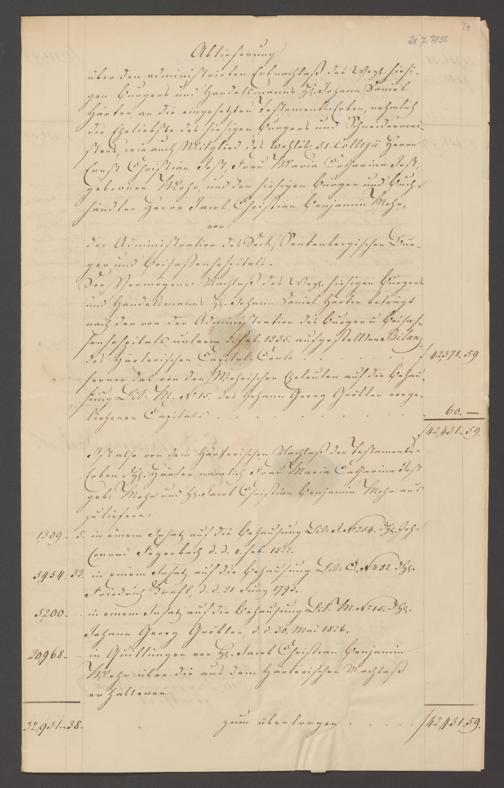 21 7 1835
Ablieferung
über den administrirten Erbnachlaß des Wegl. hiesi-
gen Bürgers und Handelsmanns H. Johann Daniel
Härter, an die eingesetzten Testamentserben, nehmlich
die Eheliebste des hiesigen Bürgers und Schneidermei-
sters, wie auch Mitglied des Wohllöbl. 51. Collegii Herrn
Ernst Christian Jost, Frau Maria Catharina Jost,
geborenen Mohr, und den hiesigen Bürger und Buch-
händler Herrn Jacob Christian Benjamin Mohr,
von
der Administration des Dock. Senkenbergischen Bür-
ger und Beisassenhospitals.
Der Vermögens Nachlaß des Wegl. hiesigen Bürgers
und Handelsmanns H. Johann Daniel Härter beträgt
nach der von der Administration des Bürger u Beisas-
senhospitals unterm Feb. 1835. aufgestellten Bilanz
des Härterischen Capital Conto 42371.59
ferner das von den Mohrischen Eheleuten auf die Behau-
sung Lit. M. No 15. des Johann Georg vorge-
liehenen Capitals 60.—
42,431.59.
Ist also von dem Härterischen Nachlaß den Testaments
Erben nämlich Frau Maria Catharina Jost
geb. Mohr und H. Jacob Christian Benjamin Mohr aus
zuliefern:
1309. in einem Insatz auf die Behausung Lit. No 254. Joh.
Conrad d. d. Feb. 1832.
5454.33. in einem Insatz auf die Behausung Lit. O. No 82
Friedrich d. d. 21 Juny 1793.
5200. in einem Insatz auf die Behausung Lit. M. No 15.
Johann Georg d. d. 30. Mai 1826.
20968. in Quittungen von H. Jacob Christian Benjamin
Mohr über die aus dem Härterischen Nachlaß
erhaltenen
32,931.38. zum übertragen 42,431.59.